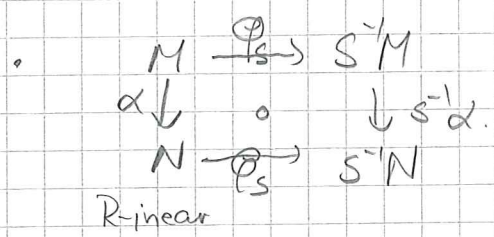 . M φ_S → S⁻¹M
α ↓ ∘ ↓ S⁻¹α.
N φ_S → S⁻¹N
R-inear